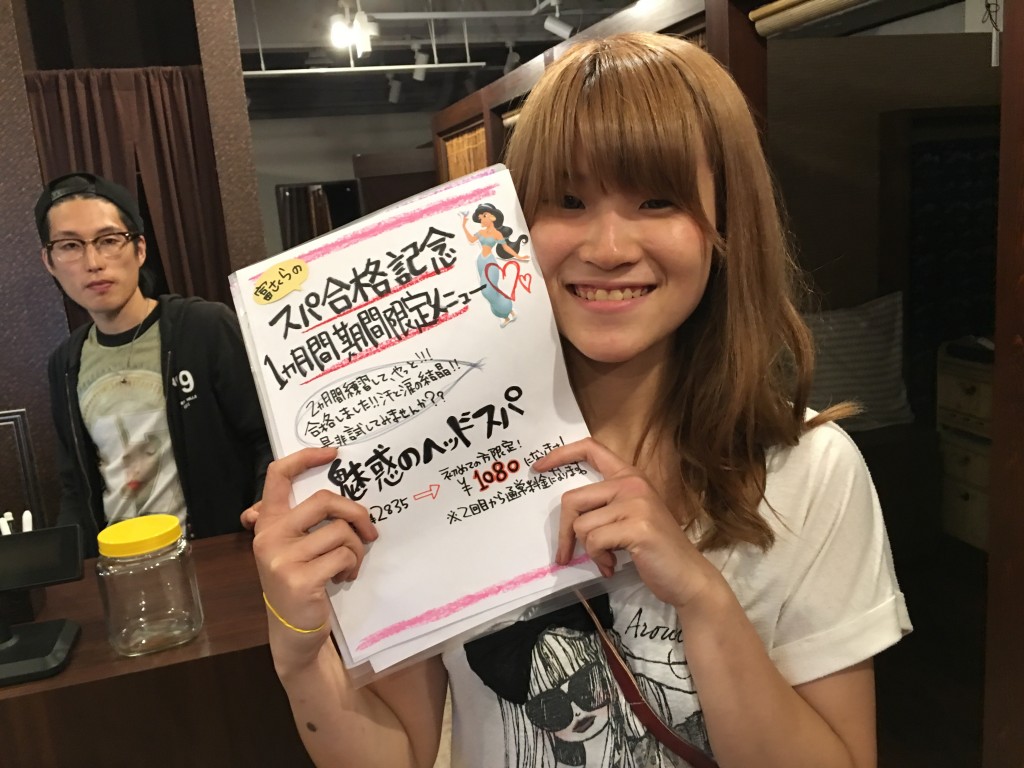 富さくらの
スパ合格記念
1ヵ月間期間限定メニュー
2ヵ月間練習して、やっと!!!
合格しました!!汗と涙の結晶!!
是非試してみませんか??
魅惑のヘッドスパ
初めての方限定!
¥2835 → ¥1080になります!
※2回目から通常料金になります。
9